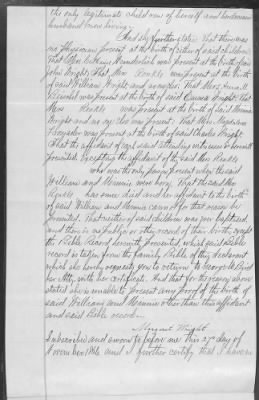 the only legitimate children of herself and
husband now living.
And she further states That there was
no physician present at the birth of either of said children
That Mrs Catharine Wunderlich was present at the birth of
John Wright. That Mrs Rendle was present at the birth
of said William Wright and no one else. That Mrs
was present at the birth of said Emma Wright. That
Mrs Rendle was present at the birth of said Minnie
Wright and no one else was present. That Mrs Magdalena
was present at the birth of said Charles Wright.
That the affidavit of each said attending witnesses is herewith
presented, Excepting the affidavit of the said Mrs Rendle
who was the only person present when the said
William and Minnie were born. That the said Mrs
Rendle has since died and her affidavit to the birth
of said William and Minnie cannot for that reason be
presented. That neither of said children was ever baptized
and there is no public or other record of their birth, except
the Bible Record herewith presented, which said Bible
record is taken from the family Bible of this declarant
which she hereby requests you to return to George
her Atty, with her certificate. And that for the reasons above
stated she is unable to present any proof of the birth of
said William and Minnie other than this affidavit
and said Bible record.
Margaret Wright
Subscribed and sworn to before me this 27 day of
November and I further certify that I have no